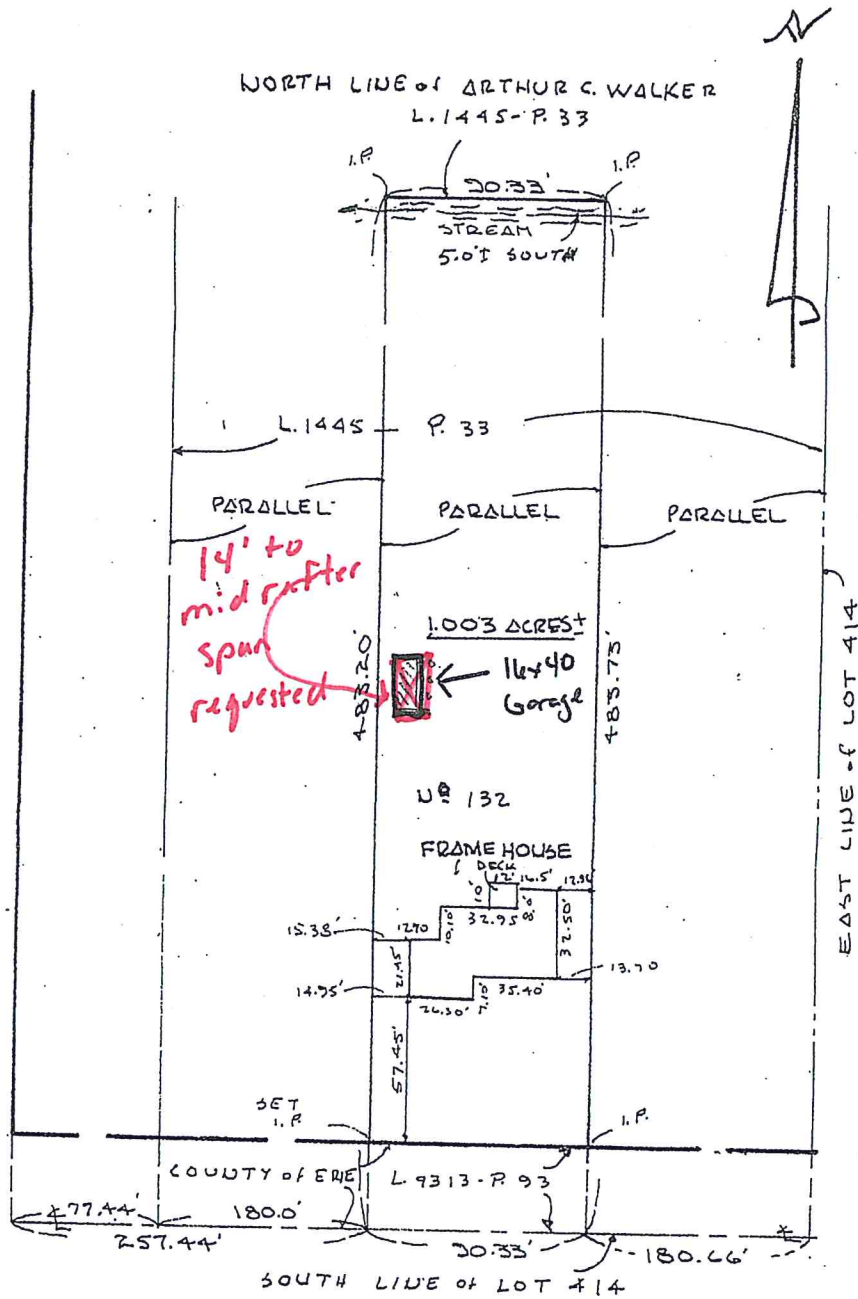 N
NORTH LINE of ARTHUR C. WALKER
L. 1445 - P. 33
I.P.
90.33'
I.P.
STREAM
5.0'± SOUTH
L. 1445 P. 33
PARALLEL
PARALLEL
PARALLEL
14' to
mid rafter
span
requested
1.003 ACRES±
16x40
Garage
483.20'
483.73'
EAST LINE of LOT 414
Nº 132
FRAME HOUSE
DECK
12'
16.5'
10'
8.0'
32.95
10.10'
32.50'
15.38'
12.90
21.45'
13.90
14.95'
26.30'
7.10'
35.40'
57.45'
SET
I.P.
I.P.
COUNTY of ERIE
L. 9313 - P. 93
77.44'
180.0'
257.44'
90.33'
180.66'
SOUTH LINE of LOT 414